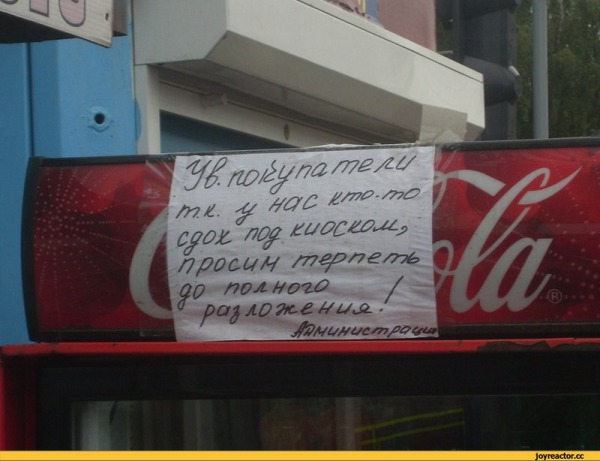 Ув. покупатели
т.к. у нас кто-то
сдох под киоском,
просим терпеть
до полного
разложения!
Администрация
Cola
®
joyreactor.cc